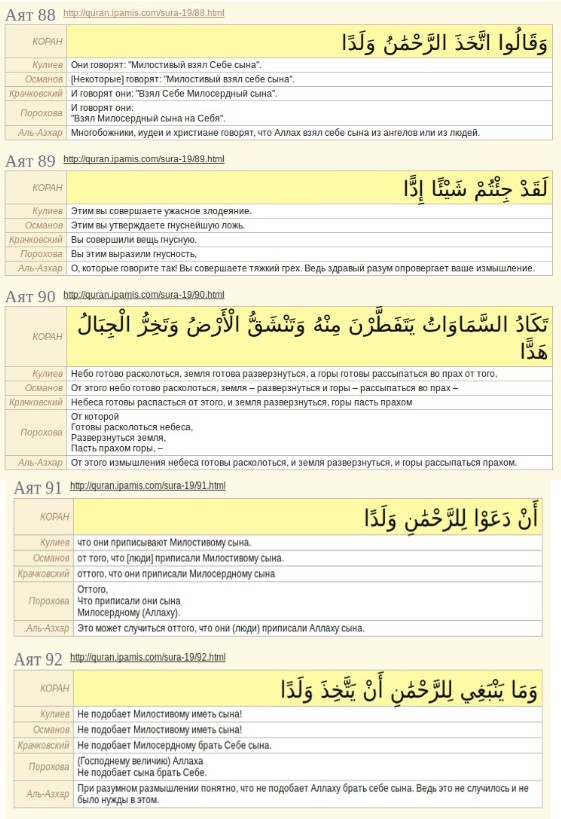 Аят 88 http://quran.ipamis.com/sura-19/88.html
КОРАН وَقَالُوا اتَّخَذَ الرَّحْمَٰنُ وَلَدًا
Кулиев Они говорят: "Милостивый взял Себе сына".
Османов [Некоторые] говорят: "Милостивый взял себе сына".
Крачковский И говорят они: "Взял Себе Милосердный сына".
Порохова И говорят они:
"Взял Милосердный сына на Себя".
Аль-Азхар Многобожники, иудеи и христиане говорят, что Аллах взял себе сына из ангелов или из людей.
Аят 89 http://quran.ipamis.com/sura-19/89.html
КОРАН لَقَدْ جِئْتُمْ شَيْئًا إِدًّا
Кулиев Этим вы совершаете ужасное злодеяние.
Османов Этим вы утверждаете гнуснейшую ложь.
Крачковский Вы совершили вещь гнусную.
Порохова Вы этим выразили гнусность,
Аль-Азхар О, которые говорите так! Вы совершаете тяжкий грех. Ведь здравый разум опровергает ваше измышление.
Аят 90 http://quran.ipamis.com/sura-19/90.html
КОРАН تَكَادُ السَّمَاوَاتُ يَتَفَطَّرْنَ مِنْهُ وَتَنْشَقُّ الْأَرْضُ وَتَخِرُّ الْجِبَالُ
هَدًّا
Кулиев Небо готово расколоться, земля готова разверзнуться, а горы готовы рассыпаться во прах от того,
Османов От этого небо готово расколоться, земля – разверзнуться и горы – рассыпаться во прах –
Крачковский Небеса готовы распасться от этого, и земля разверзнуться, горы пасть прахом
Порохова От которой
Готовы расколоться небеса,
Разверзнуться земля,
Пасть прахом горы, –
Аль-Азхар От этого измышления небеса готовы расколоться, и земля разверзнуться, и горы рассыпаться прахом.
Аят 91 http://quran.ipamis.com/sura-19/91.html
КОРАН أَنْ دَعَوْا لِلرَّحْمَٰنِ وَلَدًا
Кулиев что они приписывают Милостивому сына.
Османов от того, что [люди] приписали Милостивому сына.
Крачковский оттого, что они приписали Милосердному сына
Порохова Оттого,
Что приписали они сына
Милосердному (Аллаху).
Аль-Азхар Это может случиться оттого, что они (люди) приписали Аллаху сына.
Аят 92 http://quran.ipamis.com/sura-19/92.html
КОРАН وَمَا يَنْبَغِي لِلرَّحْمَٰنِ أَنْ يَتَّخِذَ وَلَدًا
Кулиев Не подобает Милостивому иметь сына!
Османов Не подобает Милостивому иметь сына!
Крачковский Не подобает Милосердному брать Себе сына.
Порохова (Господнему величию) Аллаха
Не подобает сына брать Себе.
Аль-Азхар При разумном размышлении понятно, что не подобает Аллаху брать себе сына. Ведь это не случилось и не
было нужды в этом.